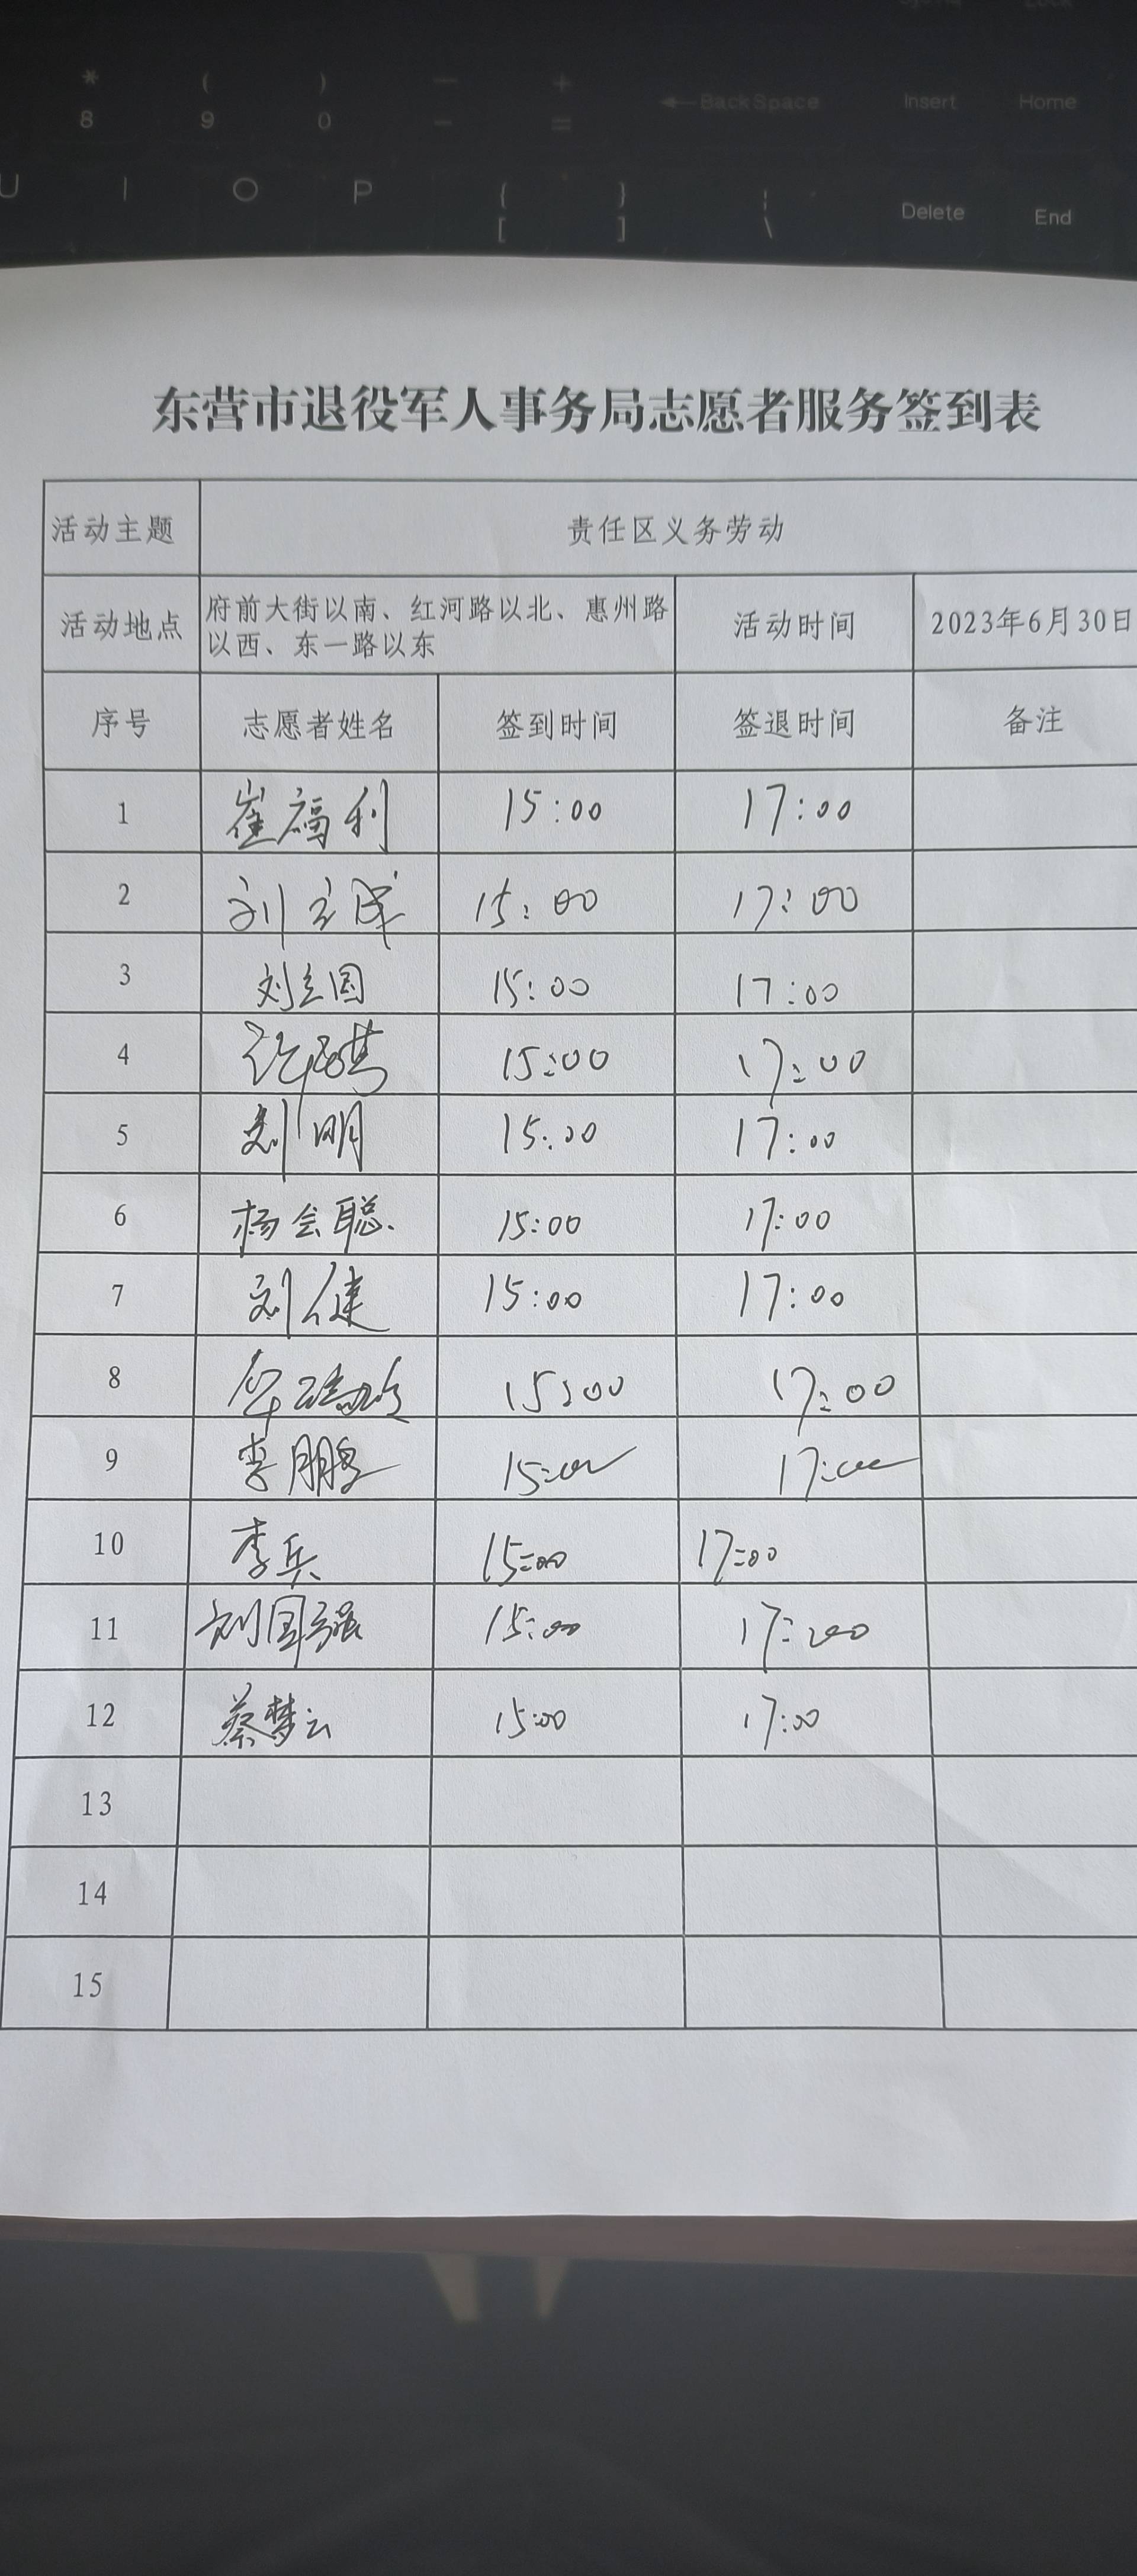 * ( ) — +
8 9 0 - = ←BackSpace Insert Home
U I O P { } ¦
[ ] \ Delete End
东营市退役军人事务局志愿者服务签到表
活动主题 责任区义务劳动
活动地点 府前大街以南、红河路以北、惠州路以西、东一路以东 活动时间 2023年6月30日
序号 志愿者姓名 签到时间 签退时间 备注
1 崔福利 15:00 17:00
2 刘立成 15:00 17:00
3 刘立国 15:00 17:00
4 15:00 17:00
5 刘明 15:00 17:00
6 杨会聪 15:00 17:00
7 刘健 15:00 17:00
8 15:00 17:00
9 李鹏 15:00 17:00
10 李兵 15:00 17:00
11 刘国强 15:00 17:00
12 蔡梦云 15:00 17:00
13
14
15